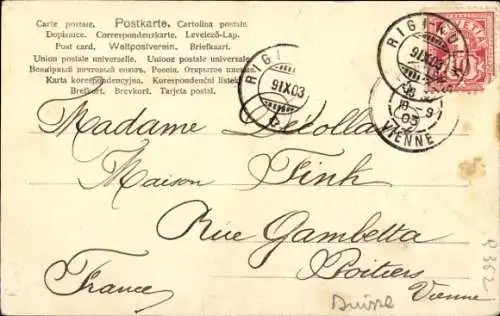 Carte postale. Postkarte. Cartolina postale.
Dopisnice. Correspondenzkarte. Levelező-Lap.
Post card. Weltpostverein. Briefkaart.
Union postale universelle. Unione postale universale.
Всемірный почтовый союзъ. Россія. Открытое письмо.
Karta korespondencyjna. Korespondenční lístek.
Brefkort. Brevkort. Tarjeta postal.
RIGI
9 IX 03
RIGI
9 IX 03
9
03
VIENNE
Madame
Maison Fink
Rue Gambetta
Poitiers
France Vienne
Suisse